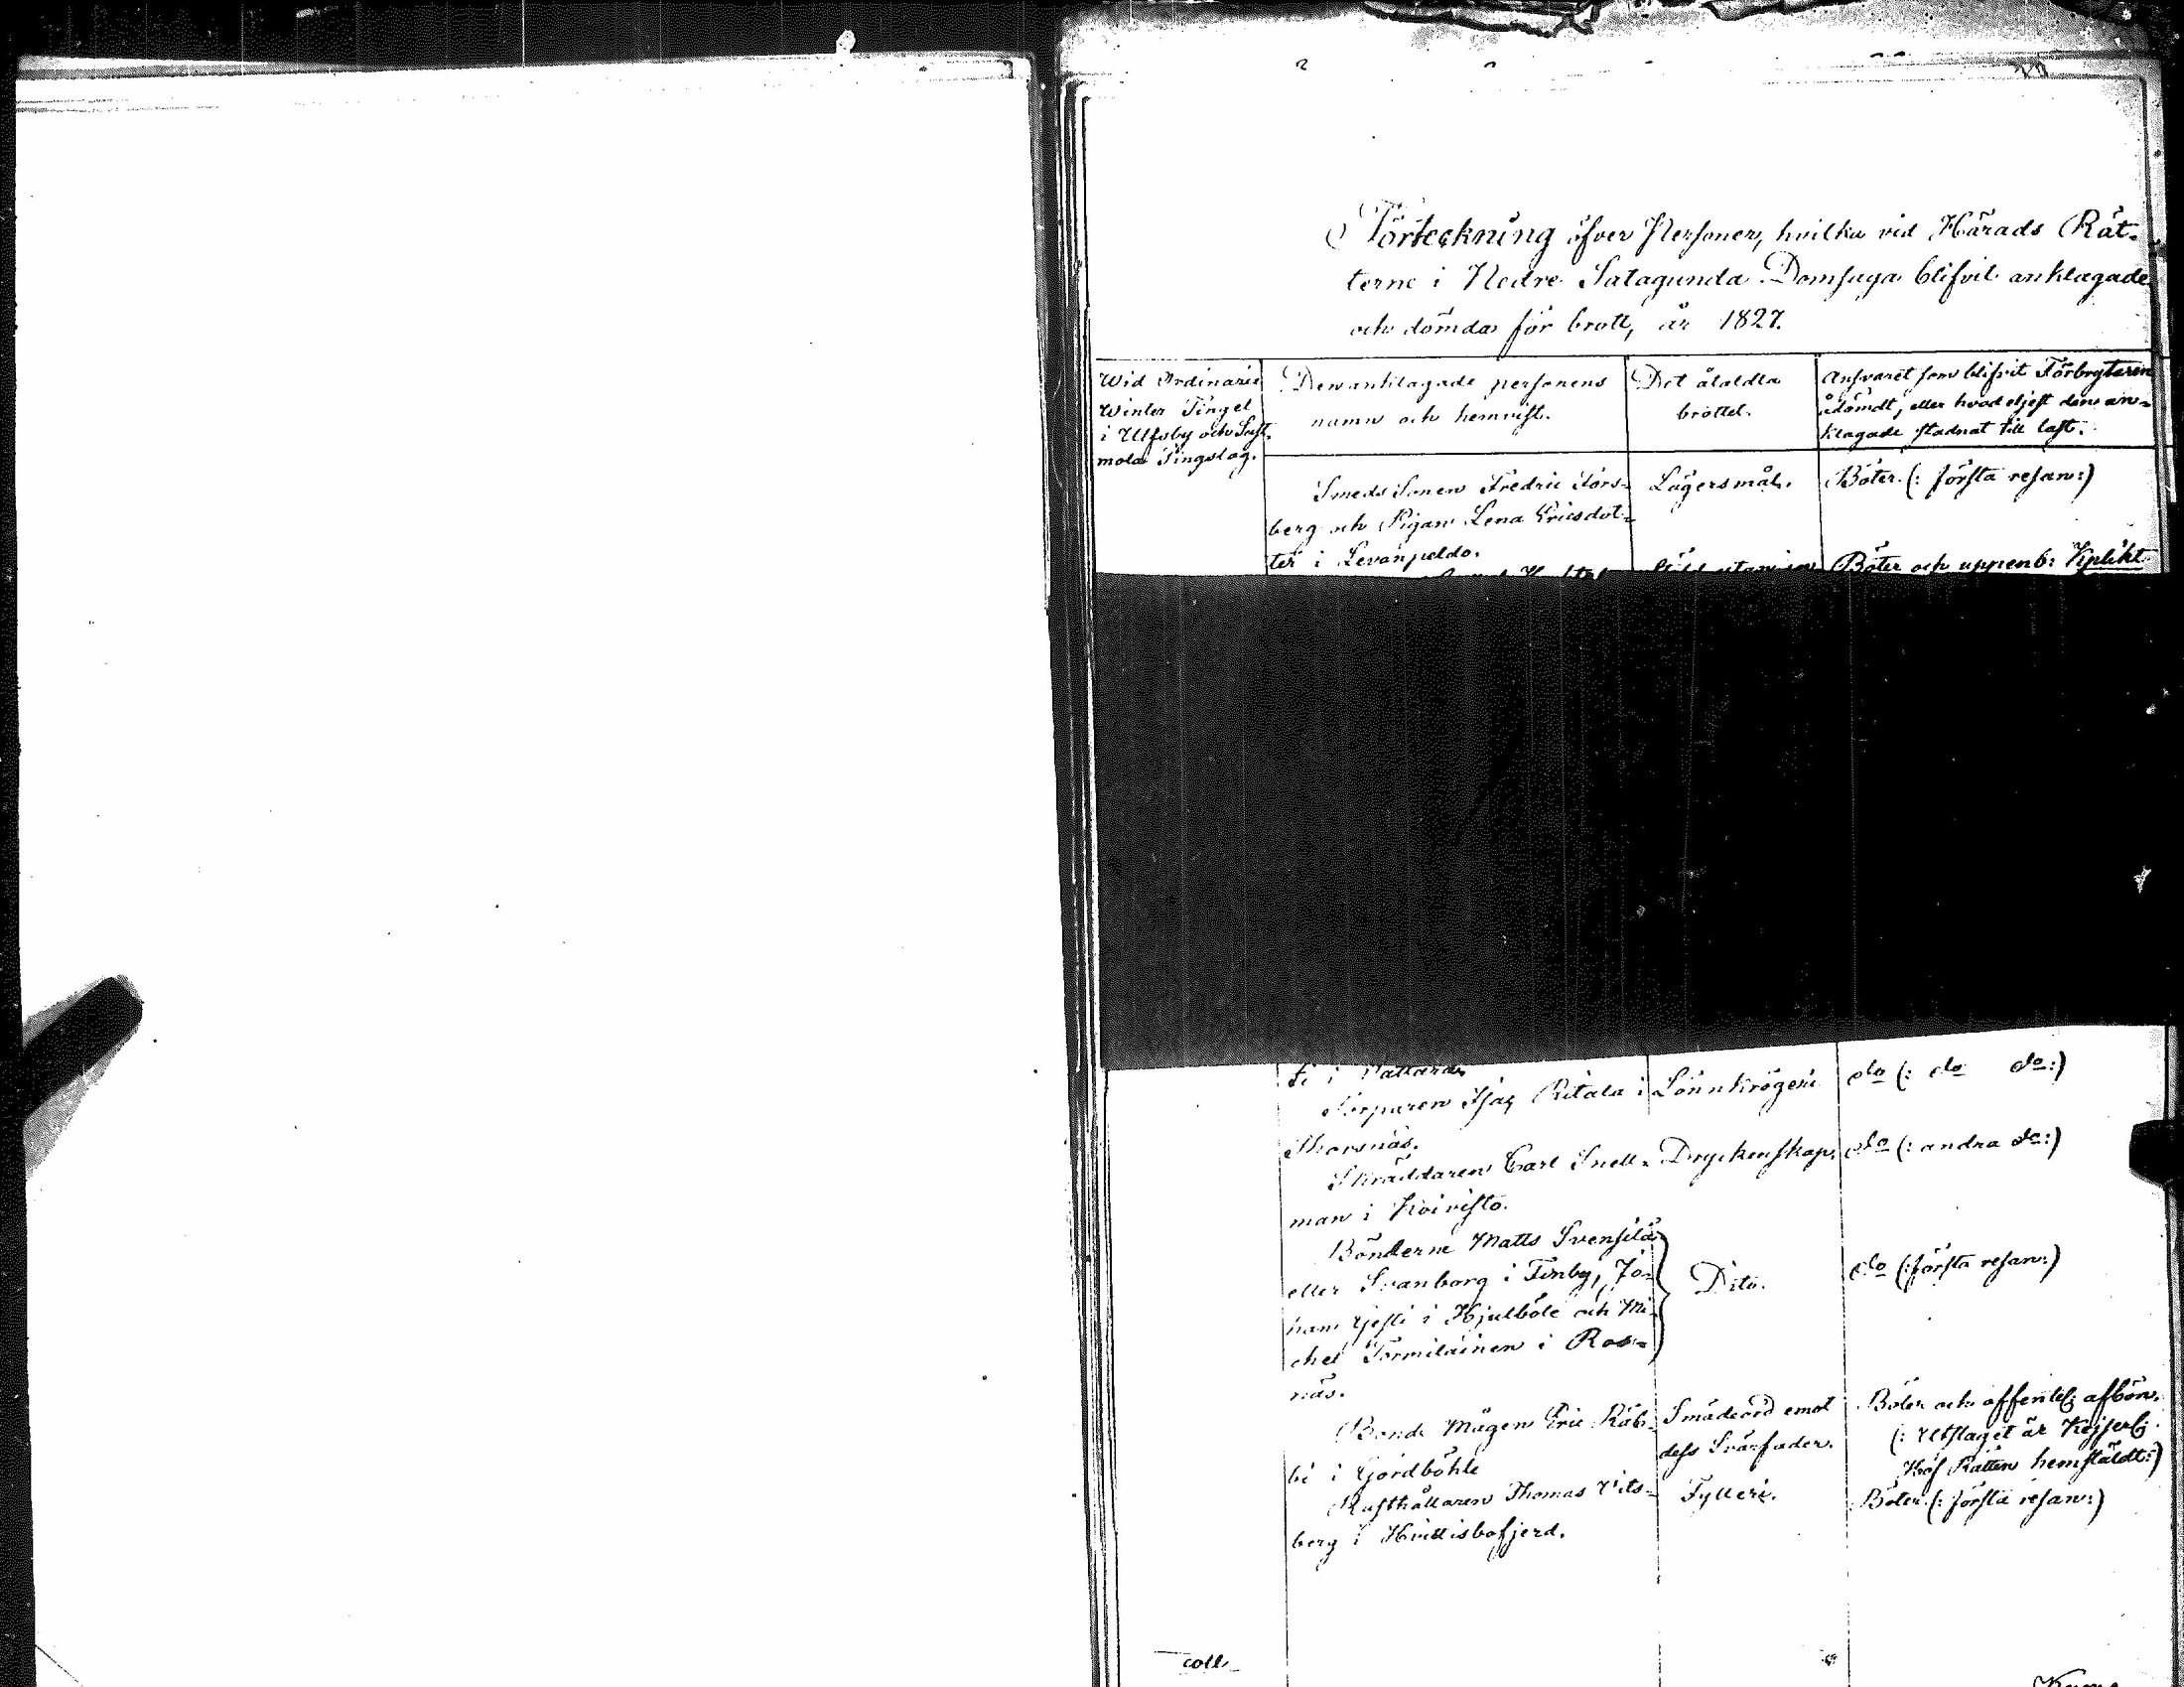 Förteckning öfver Personer, hvilka vid Härads Rät-
terne i Nedre Satagunda Domsaga blifvit anklagade
och dömda för brott, år 1827.
Wid Ordinarie
Winter Tinget
i Ulfsby och Sast-
mola Tingslag.
Den anklagade personens
namn och hemvist.
Det åtaldta
brottet.
Ansvaret som blifvit Förbrytaren
ådömdt, eller hvad eljest den an-
klagade stadnat till last.
Smeds Sonen Fredric Fors-
berg och Pigan Lena Ericsdot-
ter i Levanpeldo.
Lägersmål.
Böter (: första resan:)
Böter och uppenb: Kplikt
Torparen Isac Ritala i
Thorsnäs.
Lönnkrögeri
do (: do do:)
Skräddaren Carl Snell-
man i Koivisto.
Dryckenskap.
do (: andra do:)
Bönderne Matts Svensilä
eller Svanborg i Finby, Jo-
han Gesti i Hjulböle och Mi-
chel Tormiläinen i Ros-
näs.
Dito.
do (: första resan:)
Bonde Mågen Eric Räb-
bi i Gördböhle
Smädeord emot
dess Svärfader.
Böter och offentlig afbön.
(: Utslaget är Kejserlig
Hof Rätten hemstäldt:)
Rusthållaren Thomas Vits-
berg i Hvittisbofjerd.
Fylleri.
Böter (: första resan:)
coll